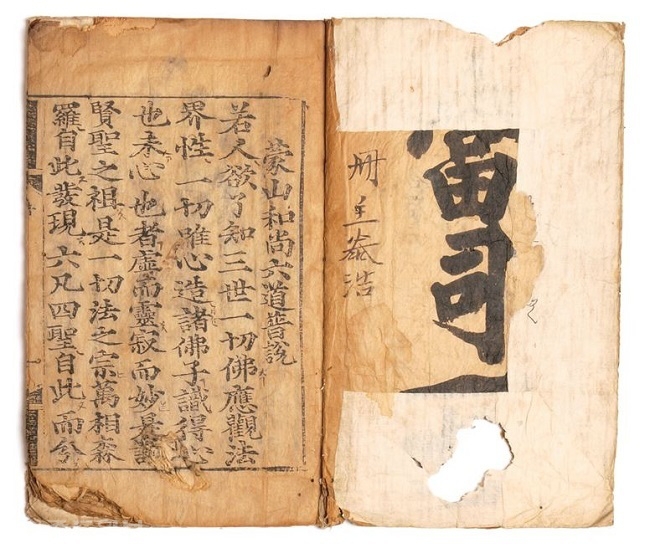 司
冊主泰浩
蒙山和尚六道普說
若人欲了知三世一切佛應觀法
界性一切唯心造諸佛子識得心
也未心也者虛而靈寂而妙是諸
賢聖之祖是一切法之宗萬相森
羅自此發現六凡四聖自此而分